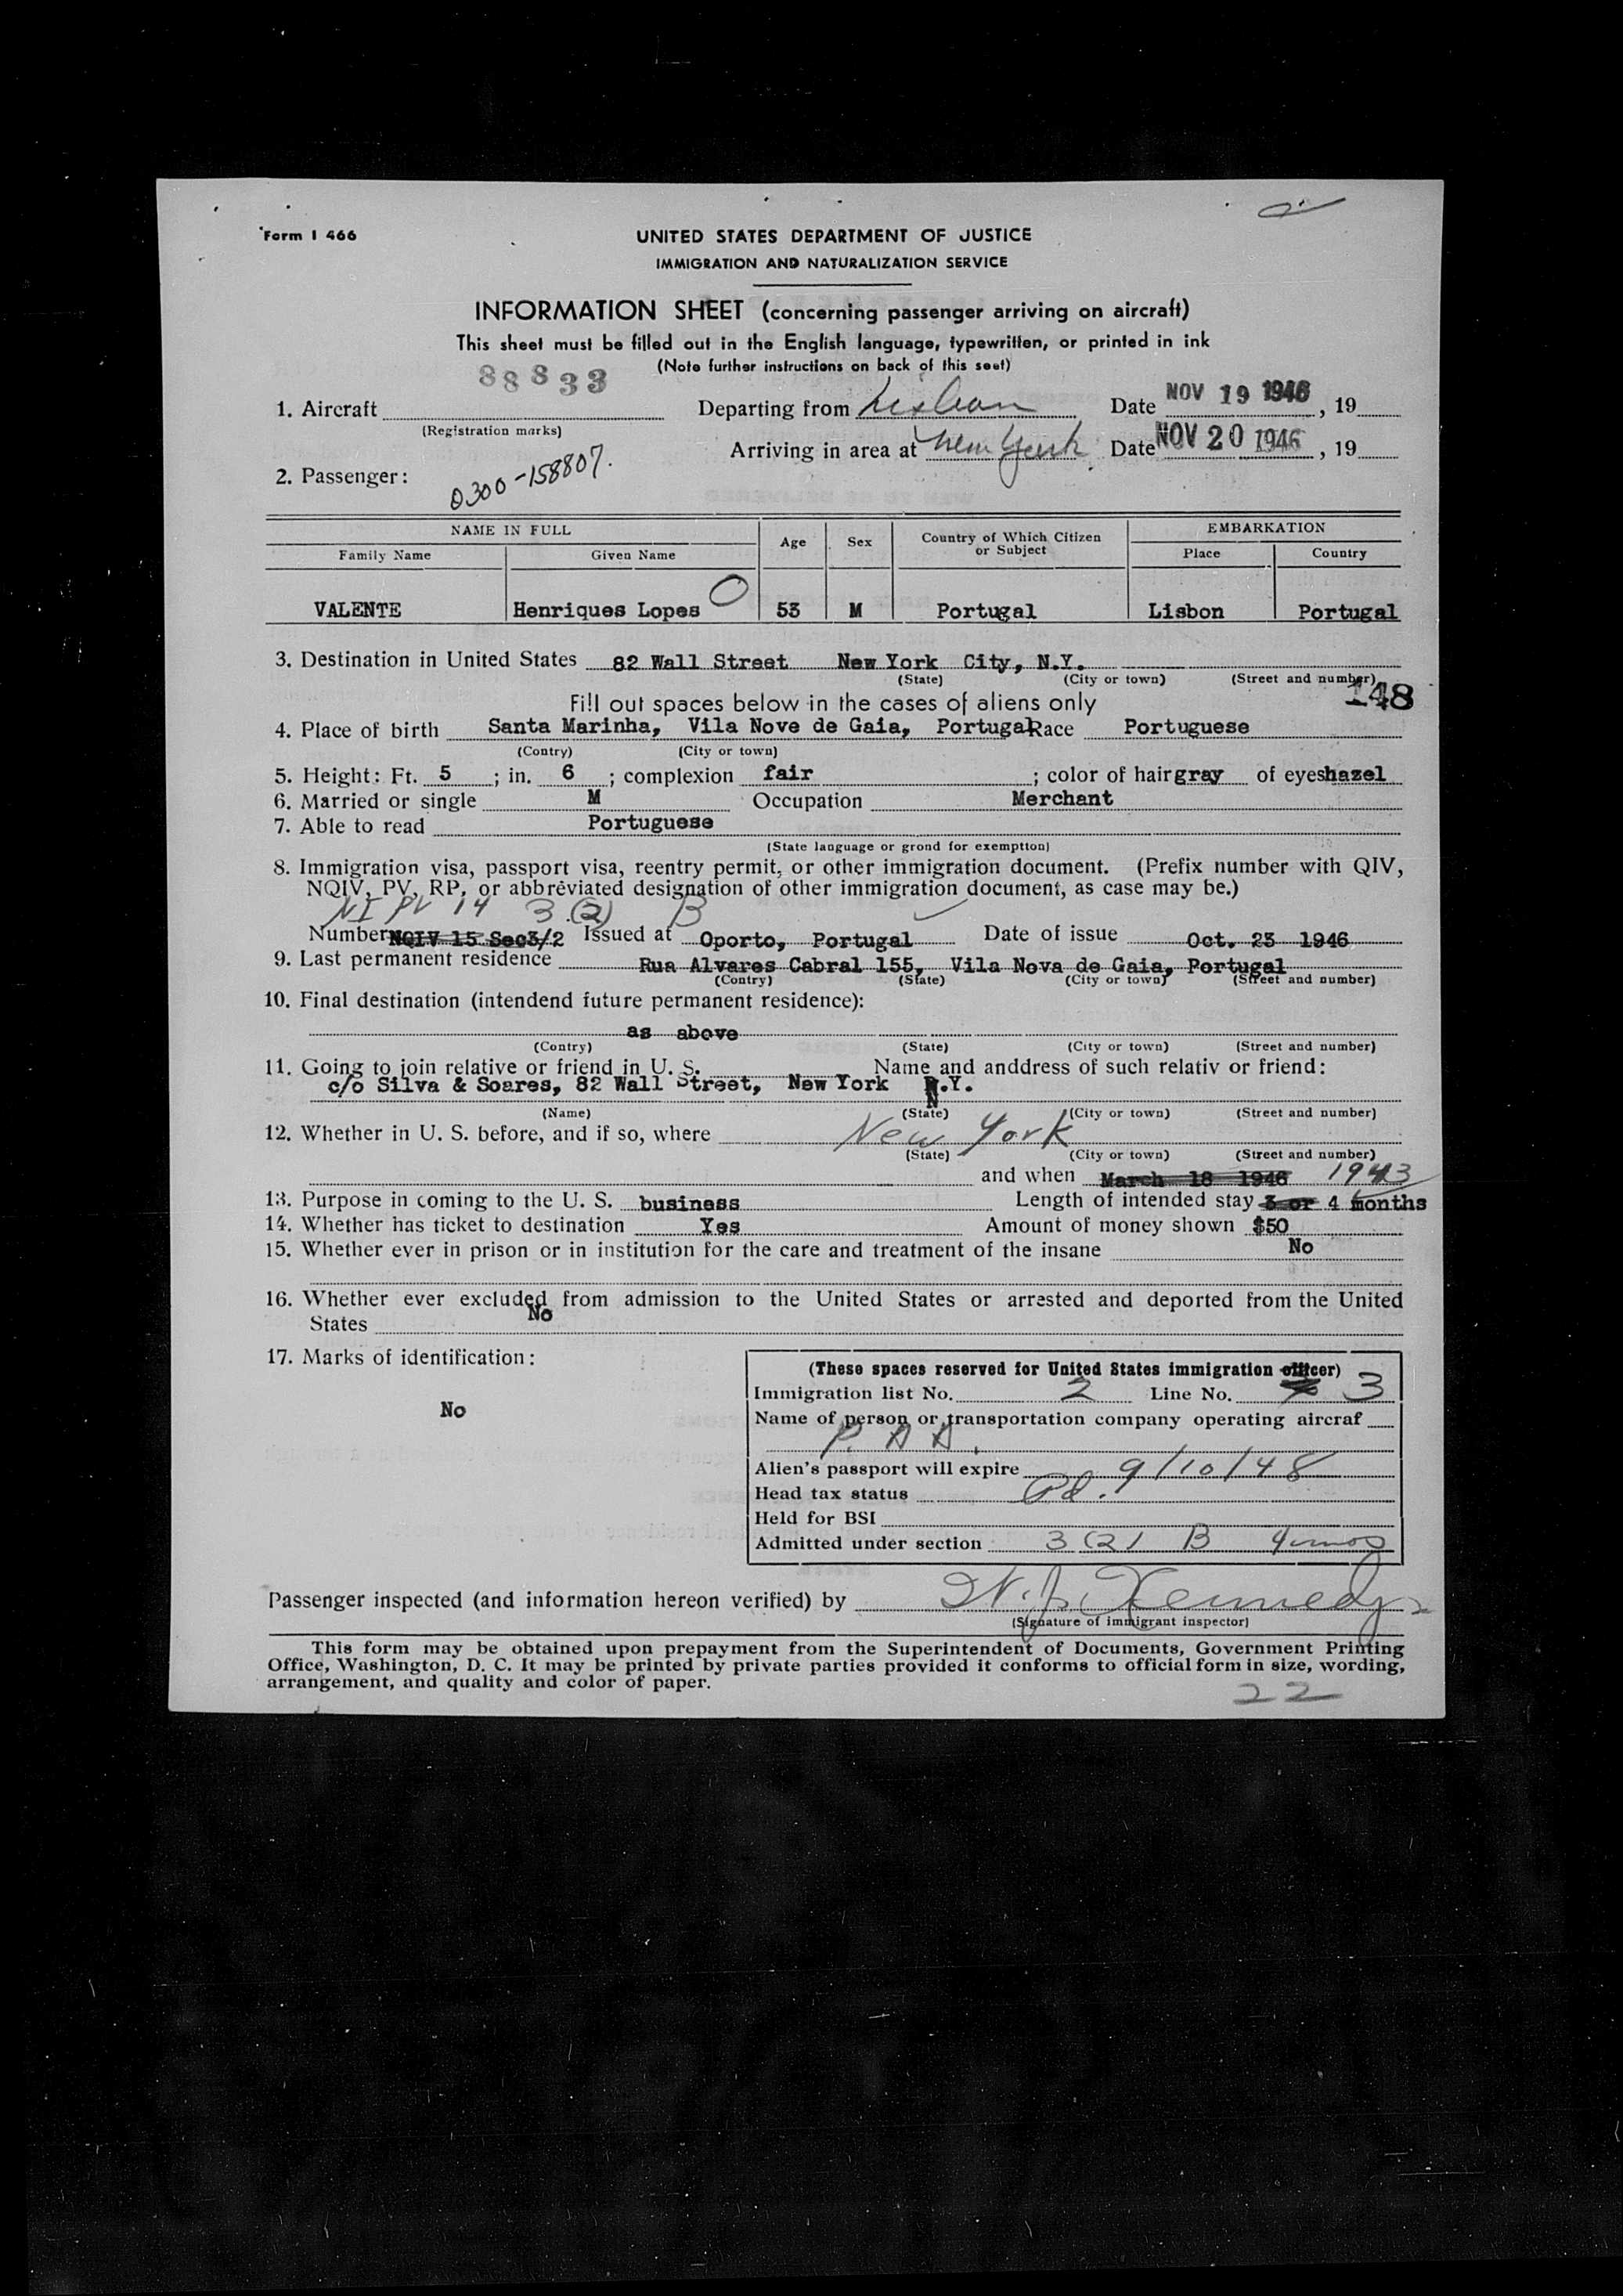 Form I 466
UNITED STATES DEPARTMENT OF JUSTICE
IMMIGRATION AND NATURALIZATION SERVICE
INFORMATION SHEET (concerning passenger arriving on aircraft)
This sheet must be filled out in the English language, typewritten, or printed in ink
(Note further instructions on back of this seet)
88833
1. Aircraft Departing from Lisbon Date NOV 19 1946, 19
(Registration marks)
Arriving in area at New York Date NOV 20 1946, 19
2. Passenger: 0300-158807.
NAME IN FULL Age Sex Country of Which Citizen or Subject EMBARKATION
Family Name Given Name Place Country
VALENTE Henriques Lopes 53 M Portugal Lisbon Portugal
3. Destination in United States 82 Wall Street New York City, N.Y.
(State) (City or town) (Street and number)
148
Fill out spaces below in the cases of aliens only
4. Place of birth Santa Marinha, Vila Nove de Gaia, Portugal Race Portuguese
(Contry) (City or town)
5. Height: Ft. 5 ; in. 6 ; complexion fair ; color of hair gray of eyes hazel
6. Married or single M Occupation Merchant
7. Able to read Portuguese
(State language or grond for exemption)
8. Immigration visa, passport visa, reentry permit, or other immigration document. (Prefix number with QIV,
NQIV, PV, RP, or abbreviated designation of other immigration document, as case may be.)
NI PV 14 3 (2) B
Number NQIV 15 Sec3/2 Issued at Oporto, Portugal Date of issue Oct. 23 1946
9. Last permanent residence Rua Alvares Cabral 155, Vila Nova de Gaia, Portugal
(Contry) (State) (City or town) (Street and number)
10. Final destination (intendend future permanent residence):
as above
(Contry) (State) (City or town) (Street and number)
11. Going to join relative or friend in U. S. Name and anddress of such relativ or friend:
c/o Silva & Soares, 82 Wall Street, New York N.Y.
(Name) (State) (City or town) (Street and number)
12. Whether in U. S. before, and if so, where New York
(State) (City or town) (Street and number)
and when March 18 1946 1943
13. Purpose in coming to the U. S. business Length of intended stay 3 or 4 months
14. Whether has ticket to destination Yes Amount of money shown $50
15. Whether ever in prison or in institution for the care and treatment of the insane No
16. Whether ever excluded from admission to the United States or arrested and deported from the United
States No
17. Marks of identification:
No
(These spaces reserved for United States immigration officer)
Immigration list No. 2 Line No. 3
Name of person or transportation company operating aircraf
P. A A.
Alien's passport will expire 9/10/48
Head tax status Pd.
Held for BSI
Admitted under section 3 (2) B 4 mos
Passenger inspected (and information hereon verified) by W. J. Kennedy
(Signature of immigrant inspector)
This form may be obtained upon prepayment from the Superintendent of Documents, Government Printing
Office, Washington, D. C. It may be printed by private parties provided it conforms to official form in size, wording,
arrangement, and quality and color of paper.
22